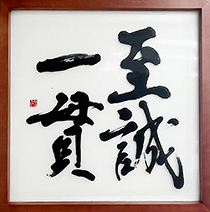 至誠
一貫